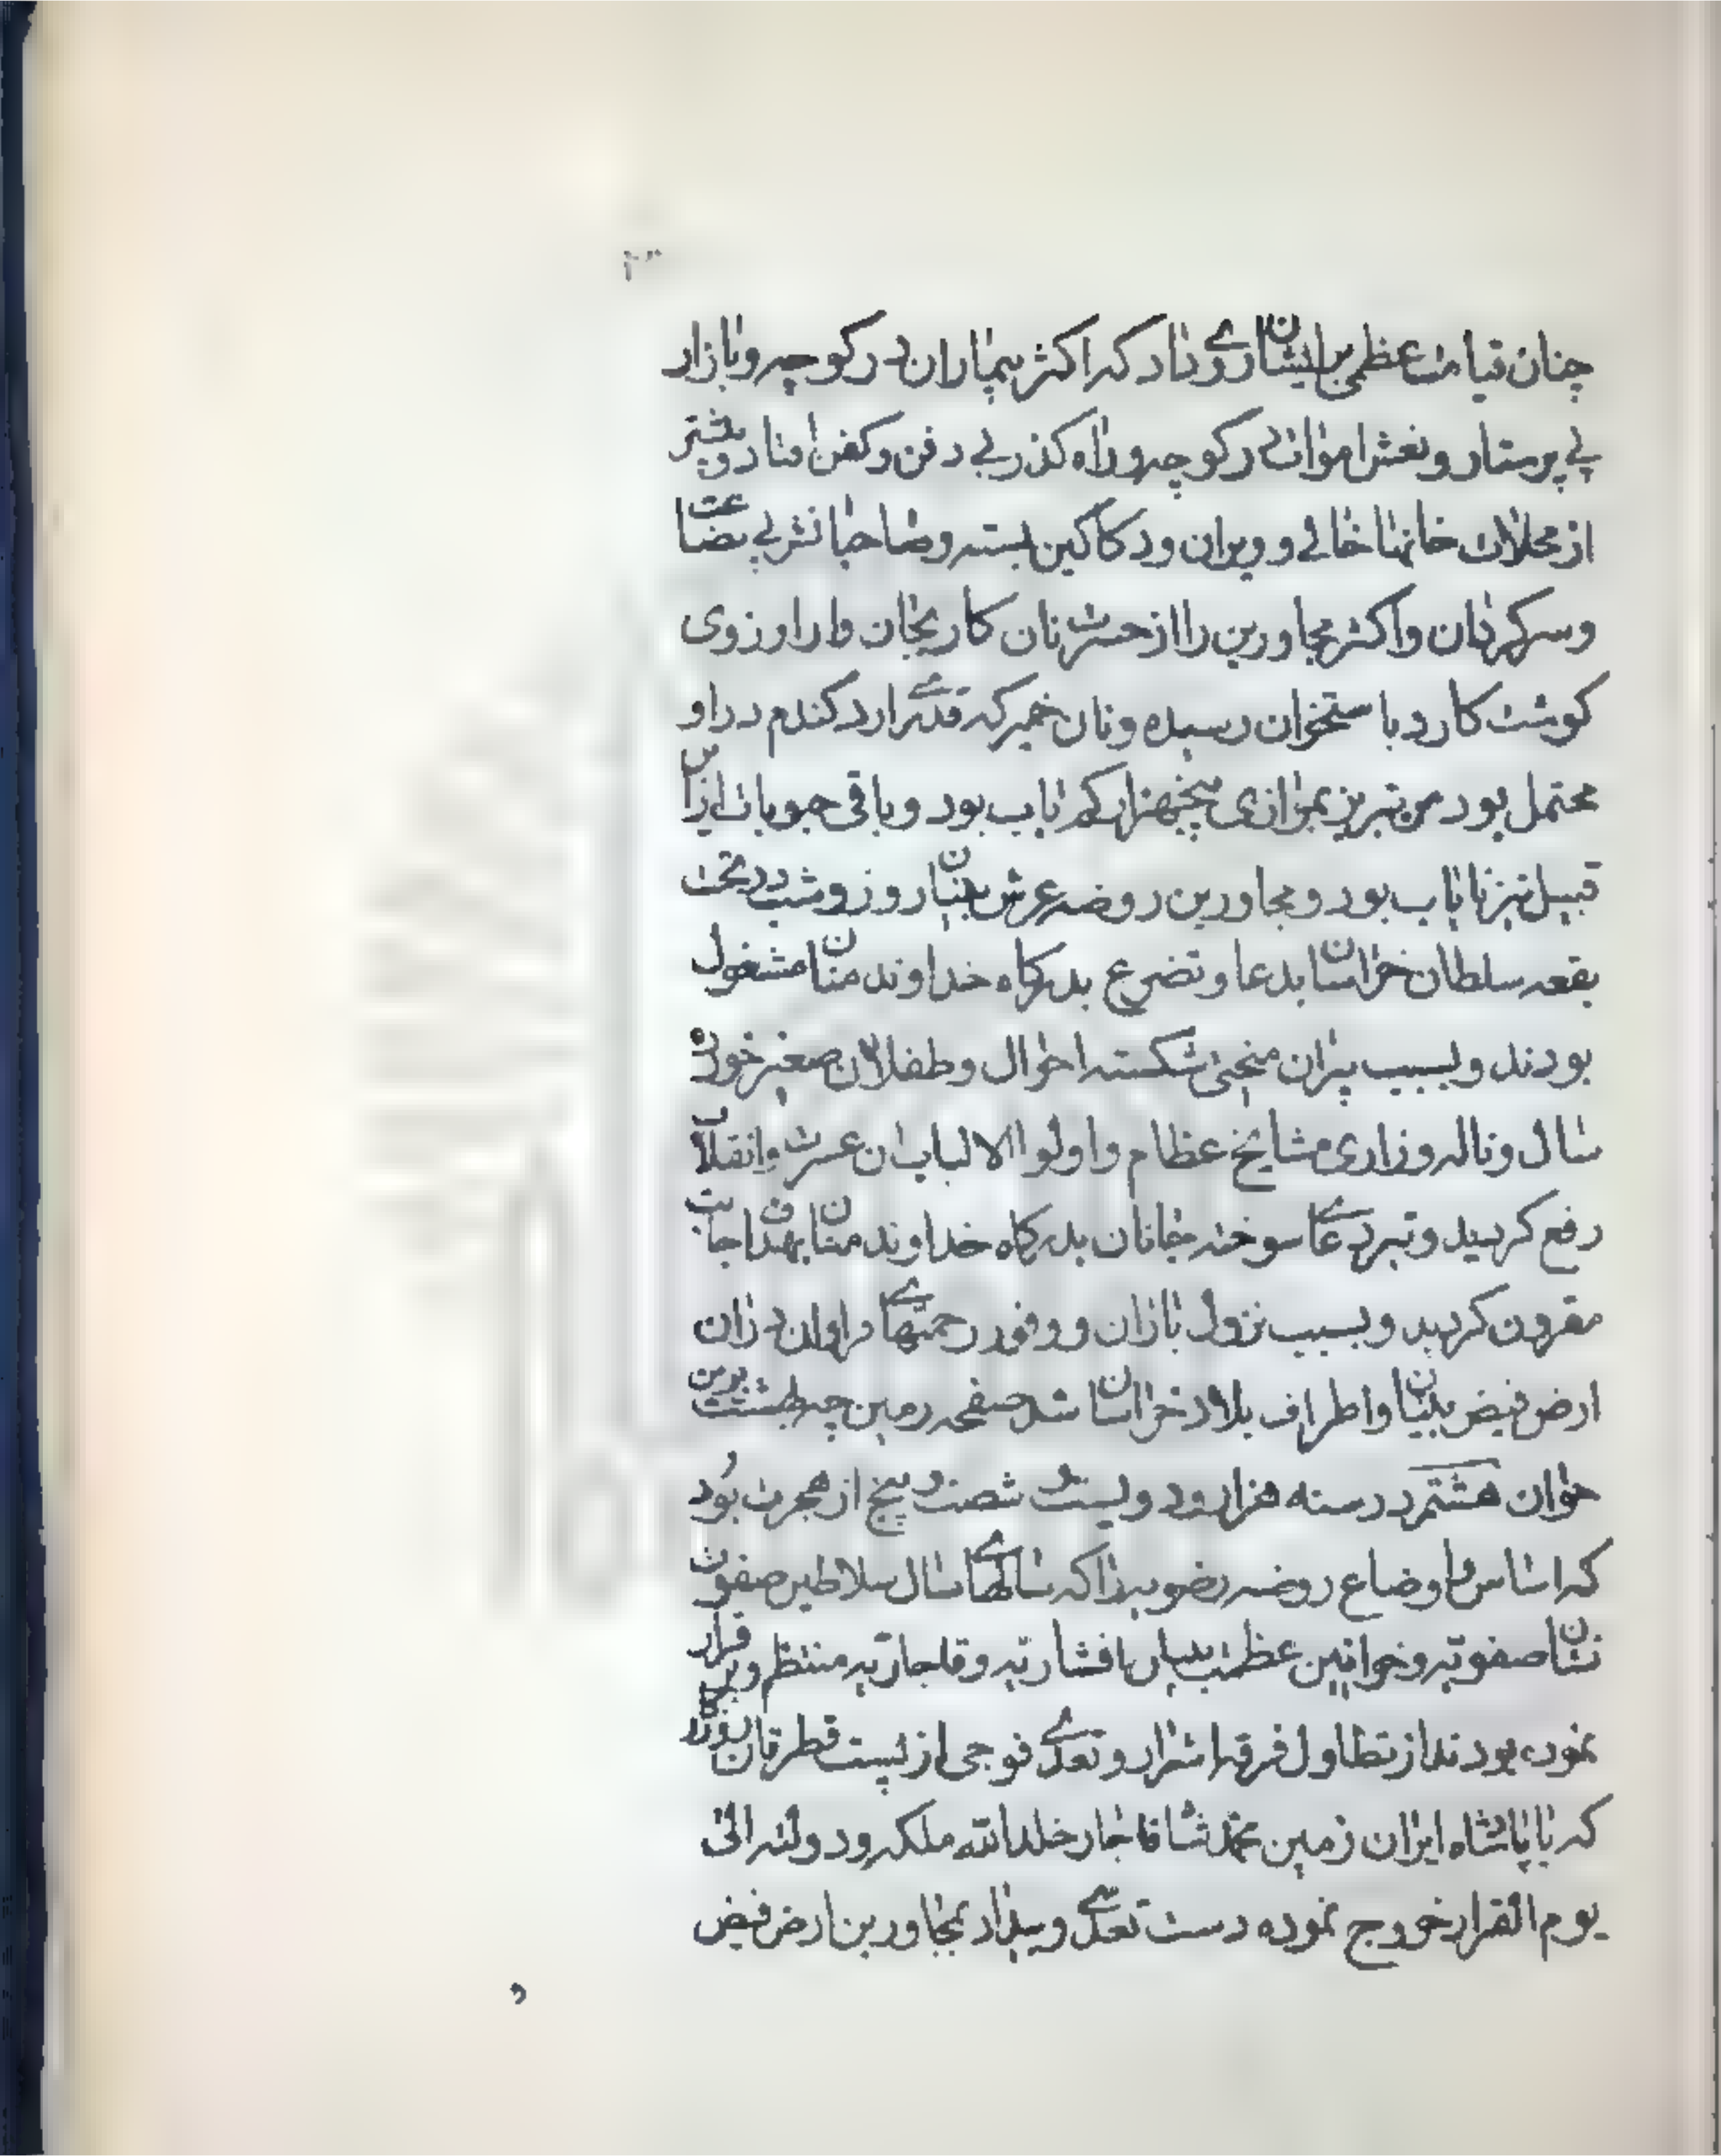 چنان قیامت عظمی برایشان روی داد که اکثر بیماران در کوچه و بازار
بی پرستار و نعش اموات در کوچه و راه کذر بی دفن و کفن افتاد و بیشتر
از محلات خانها خالی و ویران و دکاکین بسته و صاحبانش بی بضاعت
و سرکردان و اکثر مجاورین را از حسرت نان کار بجان و ارزوی
کوشت کارد باستخوان رسیده و نان خمیر که قدری ارد کندم در او
محتمل بود من تبریز بموازی پنچهزار کم یاب بود و باقی حبوبات از این
قبیل نیز نایاب بود و مجاورین روضه عرش بنیان روز و شب در تحت
بقعه سلطان خراسان بدعا و تضرع بدرکاه خداوند منان مشغول
بودند و بسبب پیران منحنی شکسته احوال و طفلان صغیر خورد
سال و ناله و زاری مشایخ عظام و اولوا الالباب ان عسرت و انقلاب
رفع کردید و تیر دعای سوخته جانان بدرکاه خداوند منان بهدف اجابت
مقرون کردید و بسبب نزول باران و وفور رحمتهای فراوان در ان
ارض فیض بنیان و اطراف بلاد خراسان شد صفحه زمین چه بهشت برین
خوان هشتم در سنه هزار و دویست و شصت و پنج از هجرت بود
که اساس و اوضاع روضه رضویه را که سالهای سال سلاطین صفوت
نشان صفویه و خواتین عظمت بنیان افشاریه و قاجاریه منتظم و برقرار
نموده بودند از تطاول فرقه اشرار و تعدی فوجی از پست فطرتان روزکار
که با پادشاه ایران زمین محمد شاه قاجار خلد الله ملکه و دولته الی
یوم القرار خروج نموده دست تعدی و بیداد بمجاورین ارض فیض